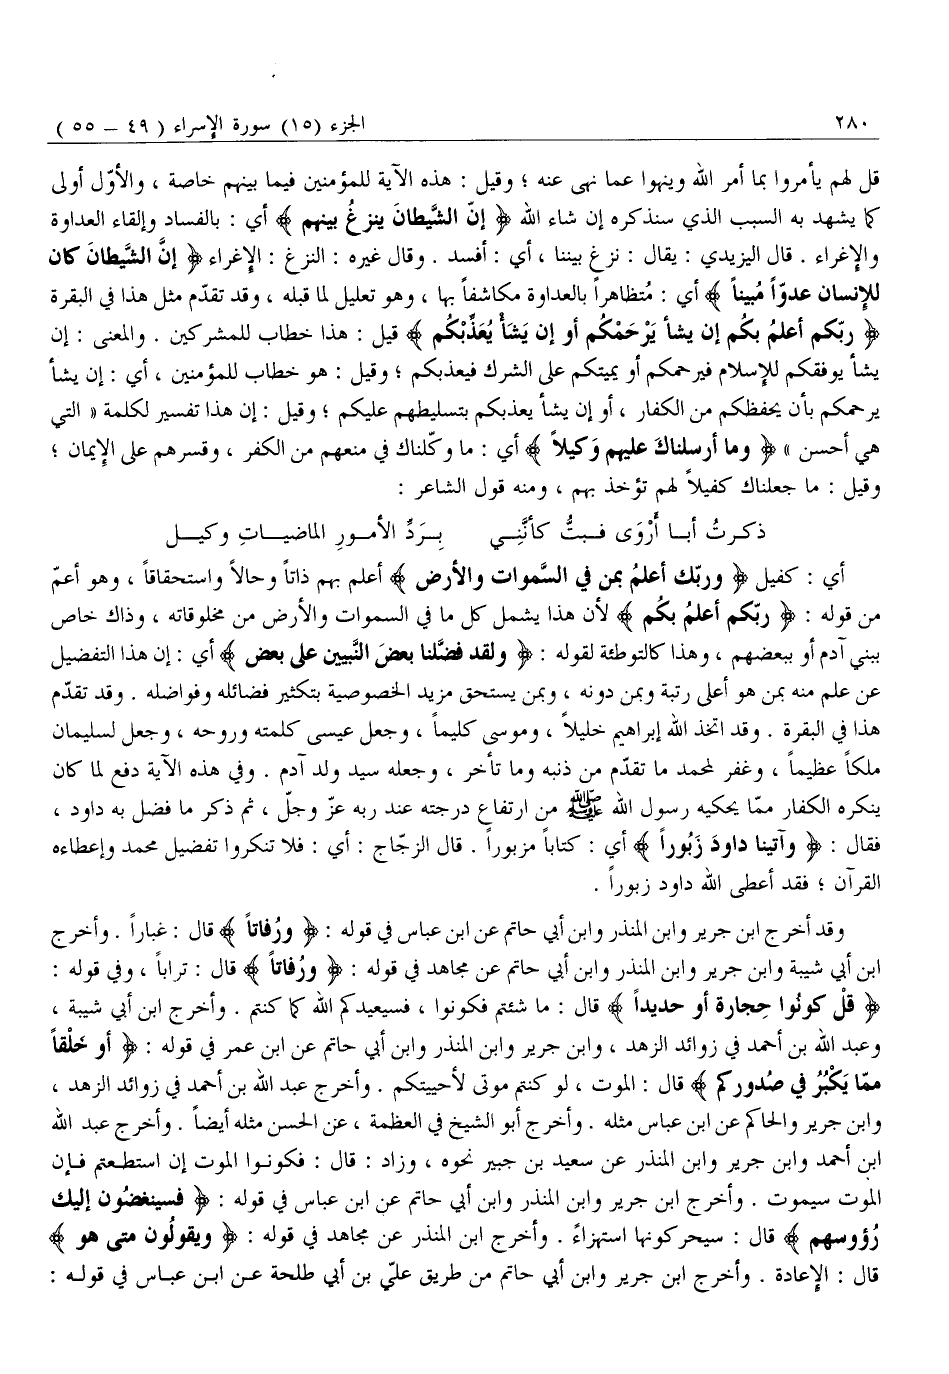 ٢٨٠ الجزء (١٥) سورة الإسراء ( ٤٩ – ٥٥ )
قل لهم يأمروا بما أمر الله وينهوا عما نهى عنه ؛ وقيل : هذه الآية للمؤمنين فيما بينهم خاصة ، والأوّل أولى
كما يشهد به السبب الذي سنذكره إن شاء الله ﴿ إنّ الشَّيطانَ ينزغُ بينهم ﴾ أي : بالفساد وإلقاء العداوة
والإغراء . قال اليزيدي : يقال : نزغ بيننا ، أي : أفسد . وقال غيره : النزغ : الإغراء ﴿ إنَّ الشَّيطانَ كان
للإنسان عدوّاً مُبيناً ﴾ أي : مُتظاهراً بالعداوة مكاشفاً بها ، وهو تعليل لما قبله ، وقد تقدّم مثل هذا في البقرة
﴿ ربّكم أعلمُ بكُم إن يشأ يَرْحَمْكُم أو إن يَشَأْ يُعَذِّبْكُم ﴾ قيل : هذا خطاب للمشركين . والمعنى : إن
يشأ يوفقكم للإسلام فيرحمكم أو يميتكم على الشرك فيعذبكم ؛ وقيل : هو خطاب للمؤمنين ، أي : إن يشأ
يرحمكم بأن يحفظكم من الكفار ، أو إن يشأ يعذبكم بتسليطهم عليكم ؛ وقيل : إن هذا تفسير لكلمة « التي
هي أحسن » ﴿ وما أرسلناكَ عليهم وَكيلاً ﴾ أي : ما وكّلناك في منعهم من الكفر ، وقسرهم على الإيمان ؛
وقيل : ما جعلناك كفيلاً لهم تؤخذ بهم ، ومنه قول الشاعر :
ذكرتُ أبا أَرْوَى فبتُّ كأنَّنِي بِرَدِّ الأمورِ الماضياتِ وكيل
أي : كفيل ﴿ وربّك أعلمُ بمن في السَّموات والأرض ﴾ أعلم بهم ذاتاً وحالاً واستحقاقاً ، وهو أعمّ
من قوله : ﴿ ربّكم أعلمُ بكُم ﴾ لأن هذا يشمل كل ما في السموات والأرض من مخلوقاته ، وذاك خاص
ببني آدم أو ببعضهم ، وهذا كالتوطئة لقوله : ﴿ ولقد فضَّلنا بعضَ النَّبيين على بعض ﴾ أي : إن هذا التفضيل
عن علم منه بمن هو أعلى رتبة وبمن دونه ، وبمن يستحق مزيد الخصوصية بتكثير فضائله وفواضله . وقد تقدّم
هذا في البقرة . وقد اتخذ الله إبراهيم خليلاً ، وموسى كليماً ، وجعل عيسى كلمته وروحه ، وجعل لسليمان
ملكاً عظيماً ، وغفر لمحمد ما تقدّم من ذنبه وما تأخر ، وجعله سيد ولد آدم . وفي هذه الآية دفع لما كان
ينكره الكفار ممّا يحكيه رسول الله ﷺ من ارتفاع درجته عند ربه عزّ وجلّ ، ثم ذكر ما فضل به داود ،
فقال : ﴿ وآتينا داودَ زَبُوراً ﴾ أي : كتاباً مزبوراً . قال الزجّاج : أي : فلا تنكروا تفضيل محمد وإعطاءه
القرآن ؛ فقد أعطى الله داود زبوراً .
وقد أخرج ابن جرير وابن المنذر وابن أبي حاتم عن ابن عباس في قوله : ﴿ ورُفاتاً ﴾ قال : غباراً . وأخرج
ابن أبي شيبة وابن جرير وابن المنذر وابن أبي حاتم عن مجاهد في قوله : ﴿ ورُفاتاً ﴾ قال : تراباً ، وفي قوله :
﴿ قلْ كونُوا حِجارة أو حديداً ﴾ قال : ما شئتم فكونوا ، فسيعيدكم الله كما كنتم . وأخرج ابن أبي شيبة ،
وعبد الله بن أحمد في زوائد الزهد ، وابن جرير وابن المنذر وابن أبي حاتم عن ابن عمر في قوله : ﴿ أو خلْقاً
ممّا يَكْبُرُ في صُدوركم ﴾ قال : الموت ، لو كنتم موتى لأحييتكم . وأخرج عبد الله بن أحمد في زوائد الزهد ،
وابن جرير والحاكم عن ابن عباس مثله . وأخرج أبو الشيخ في العظمة ، عن الحسن مثله أيضاً . وأخرج عبد الله
ابن أحمد وابن جرير وابن المنذر عن سعيد بن جبير نحوه ، وزاد : قال : فكونوا الموت إن استطعتم فإن
الموت سيموت . وأخرج ابن جرير وابن المنذر وابن أبي حاتم عن ابن عباس في قوله : ﴿ فسينغضُون إليك
رُؤوسهم ﴾ قال : سيحركونها استهزاءً . وأخرج ابن المنذر عن مجاهد في قوله : ﴿ ويقولُون متى هو ﴾
قال : الإعادة . وأخرج ابن جرير وابن أبي حاتم من طريق عليّ بن أبي طلحة عن ابن عباس في قوله :